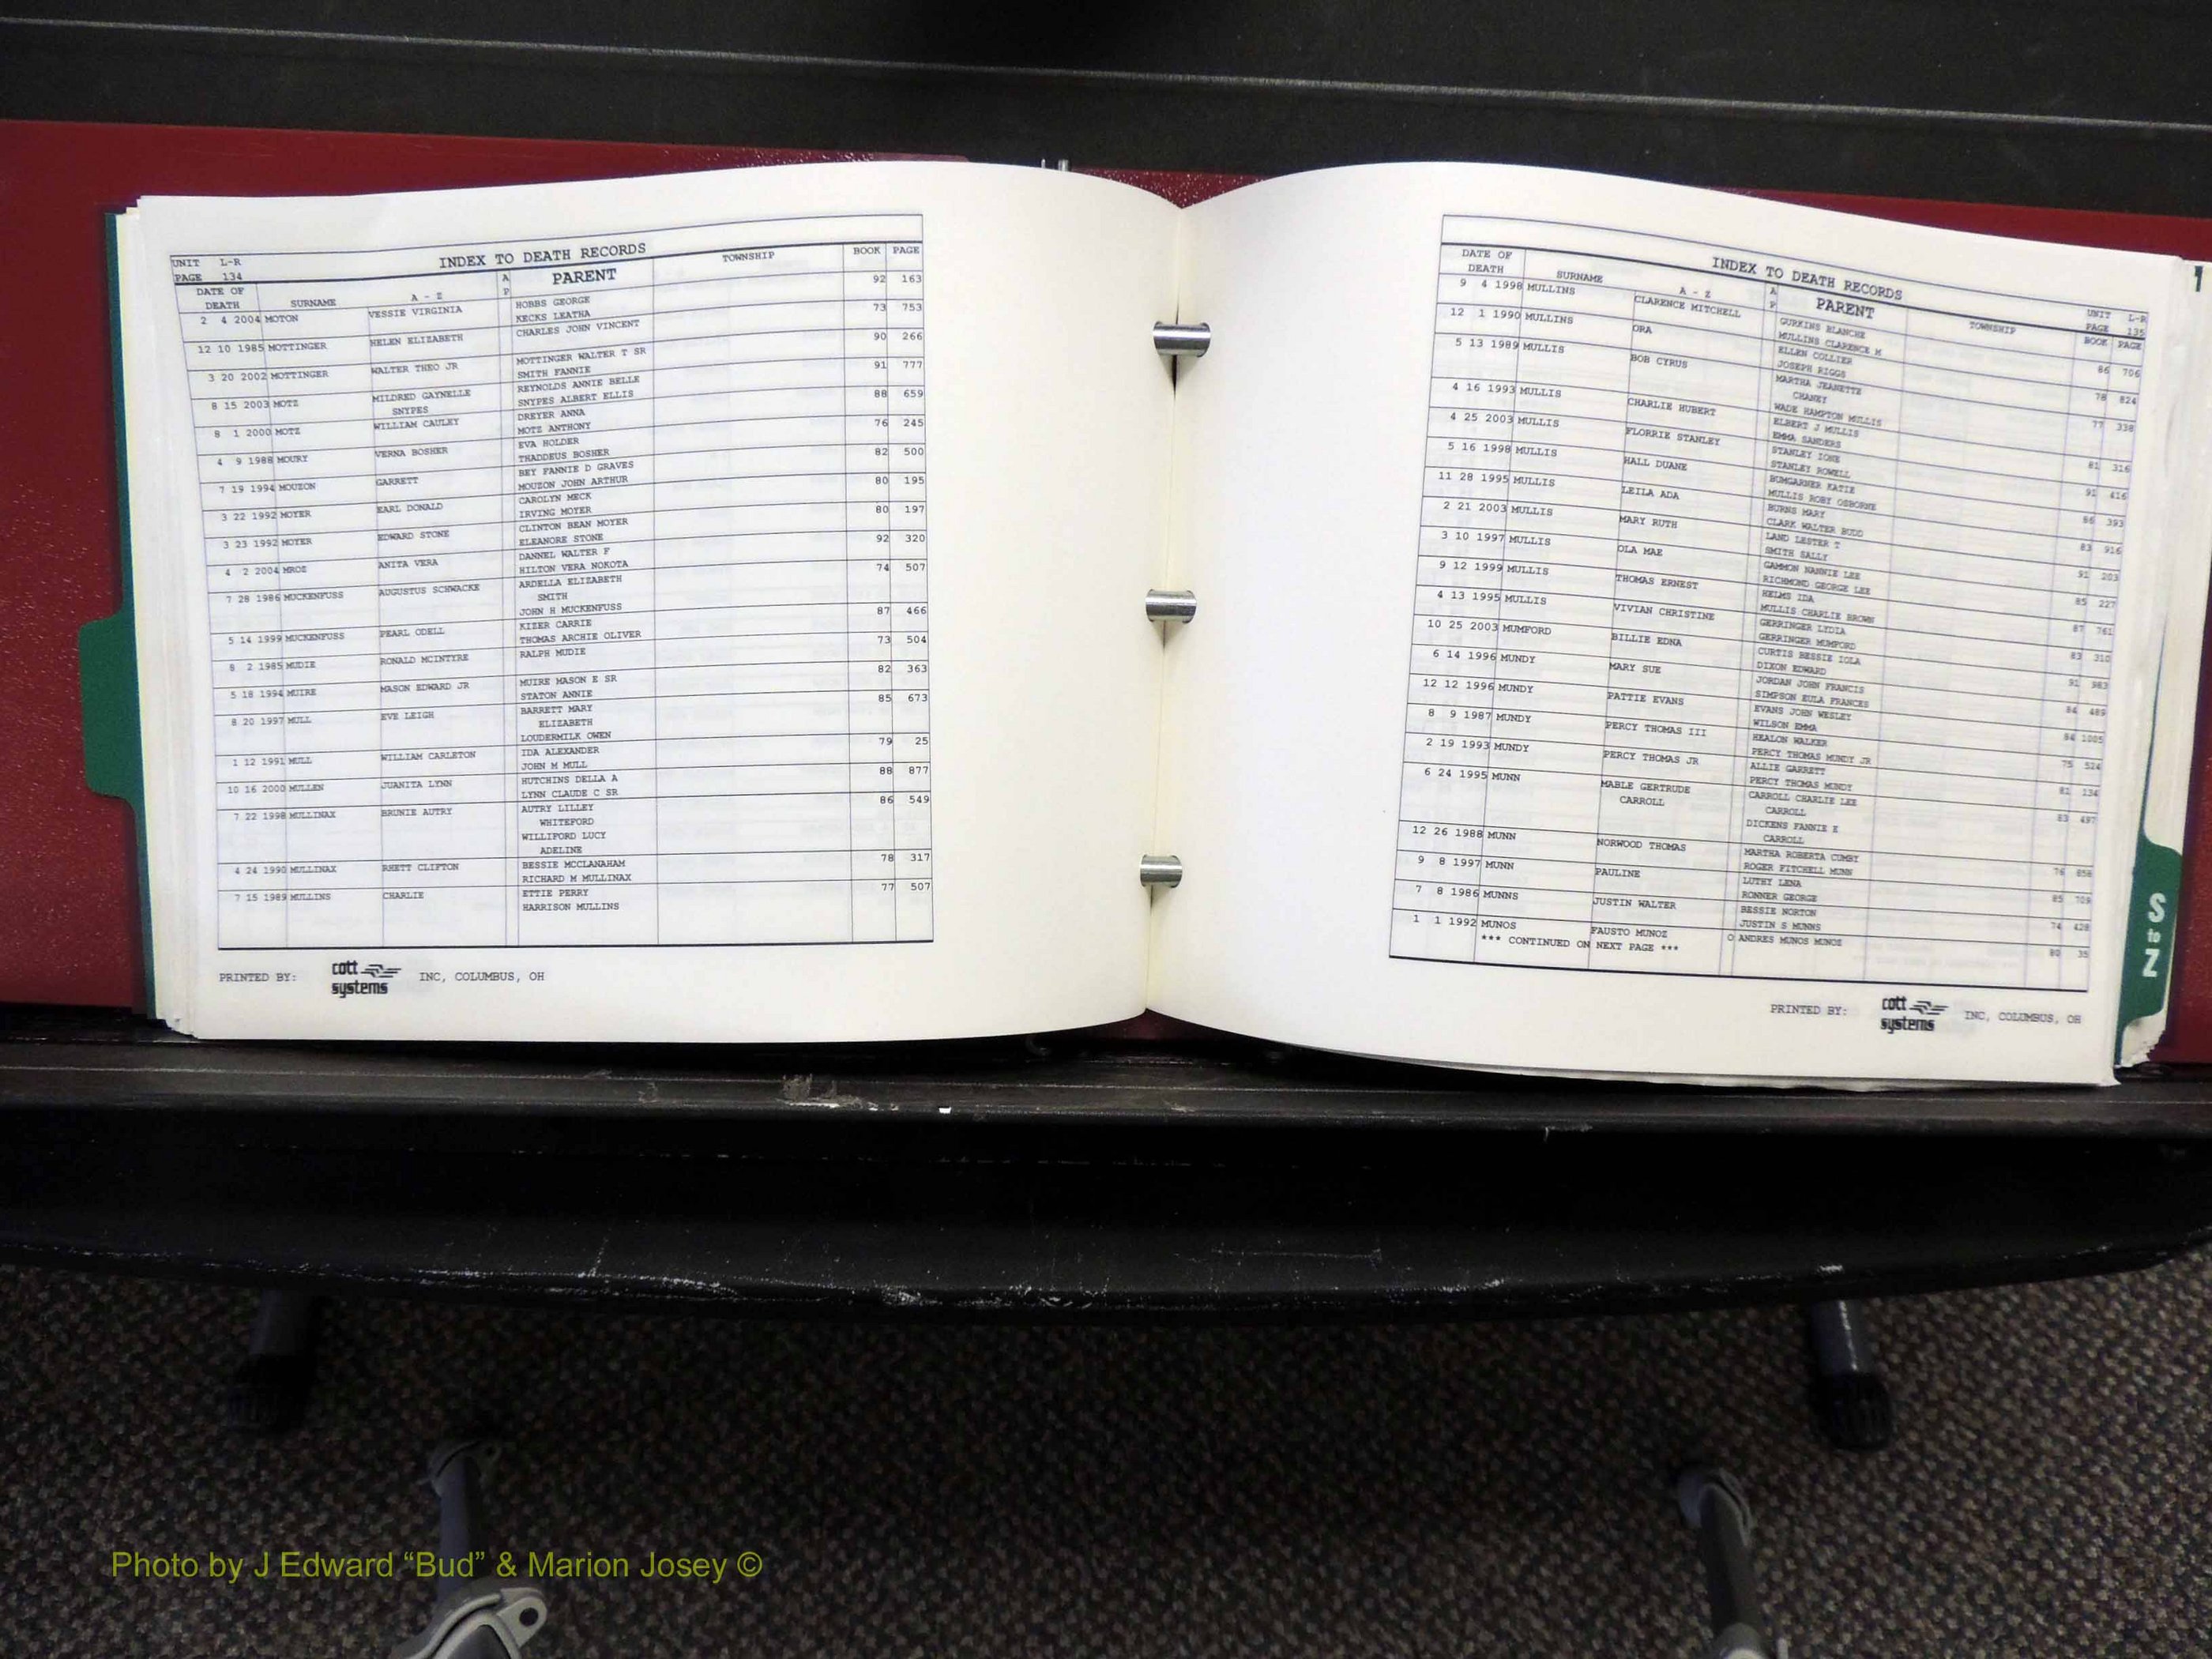 UNIT L-R INDEX TO DEATH RECORDS
PAGE 134
DATE OF DEATH SURNAME A - Z A P PARENT TOWNSHIP BOOK PAGE
2 4 2004 MOTON VESSIE VIRGINIA HOBBS GEORGE 92 163
KECKS LEATHA
12 10 1985 MOTTINGER HELEN ELIZABETH CHARLES JOHN VINCENT 73 753
3 20 2002 MOTTINGER WALTER THEO JR MOTTINGER WALTER T SR 90 266
SMITH FANNIE
8 15 2003 MOTZ MILDRED GAYNELLE REYNOLDS ANNIE BELLE 91 777
SNYPES SNYPES ALBERT ELLIS
8 1 2000 MOTZ WILLIAM CAULEY DREYER ANNA 88 659
MOTZ ANTHONY
4 9 1988 MOURY VERNA BOSHER EVA HOLDER 76 245
THADDEUS BOSHER
7 19 1994 MOUZON GARRETT BEY FANNIE D GRAVES 82 500
MOUZON JOHN ARTHUR
3 22 1992 MOYER EARL DONALD CAROLYN MECK 80 195
IRVING MOYER
3 23 1992 MOYER EDWARD STONE CLINTON BEAN MOYER 80 197
ELEANORE STONE
4 2 2004 MROZ ANITA VERA DANNEL WALTER F 92 320
HILTON VERA NOKOTA
7 28 1986 MUCKENFUSS AUGUSTUS SCHWACKE ARDELLA ELIZABETH 74 507
SMITH
JOHN H MUCKENFUSS
5 14 1999 MUCKENFUSS PEARL ODELL KIZER CARRIE 87 466
THOMAS ARCHIE OLIVER
8 2 1985 MUDIE RONALD MCINTYRE RALPH MUDIE 73 504
5 18 1994 MUIRE MASON EDWARD JR MUIRE MASON E SR 82 363
STATON ANNIE
8 20 1997 MULL EVE LEIGH BARRETT MARY 85 673
ELIZABETH
LOUDERMILK OWEN
1 12 1991 MULL WILLIAM CARLETON IDA ALEXANDER 79 25
JOHN M MULL
10 16 2000 MULLEN JUANITA LYNN HUTCHINS DELLA A 88 877
LYNN CLAUDE C SR
7 22 1998 MULLINAX BRUNIE AUTRY AUTRY LILLEY 86 549
WHITEFORD
WILLIFORD LUCY
ADELINE
4 24 1990 MULLINAX RHETT CLIFTON BESSIE MCCLANAHAM 78 317
RICHARD M MULLINAX
7 15 1989 MULLINS CHARLIE ETTIE PERRY 77 507
HARRISON MULLINS
PRINTED BY: cott systems INC, COLUMBUS, OH
INDEX TO DEATH RECORDS UNIT L-R
PAGE 135
DATE OF DEATH SURNAME A - Z A P PARENT TOWNSHIP BOOK PAGE
9 4 1998 MULLINS CLARENCE MITCHELL GURKINS BLANCHE 86 706
MULLINS CLARENCE M
12 1 1990 MULLINS ORA ELLEN COLLIER 78 824
JOSEPH RIGGS
5 13 1989 MULLIS BOB CYRUS MARTHA JEANETTE 77 338
CHANEY
WADE HAMPTON MULLIS
4 16 1993 MULLIS CHARLIE HUBERT ELBERT J MULLIS 81 316
EMMA SANDERS
4 25 2003 MULLIS FLORRIE STANLEY STANLEY IONE 91 416
STANLEY ROWELL
5 16 1998 MULLIS HALL DUANE BUMGARNER KATIE 86 393
MULLIS ROBY OSBORNE
11 28 1995 MULLIS LEILA ADA BURNS MARY 83 916
CLARK WALTER BUDD
2 21 2003 MULLIS MARY RUTH LAND LESTER T 91 203
SMITH SALLY
3 10 1997 MULLIS OLA MAE GAMMON NANNIE LEE 85 227
RICHMOND GEORGE LEE
9 12 1999 MULLIS THOMAS ERNEST HELMS IDA 87 761
MULLIS CHARLIE BROWN
4 13 1995 MULLIS VIVIAN CHRISTINE GERRINGER LYDIA 83 310
GERRINGER MUMFORD
10 25 2003 MUMFORD BILLIE EDNA CURTIS BESSIE IOLA 91 983
DIXON EDWARD
6 14 1996 MUNDY MARY SUE JORDAN JOHN FRANCIS 84 489
SIMPSON EULA FRANCES
12 12 1996 MUNDY PATTIE EVANS EVANS JOHN WESLEY 84 1005
WILSON EMMA
8 9 1987 MUNDY PERCY THOMAS III HEALON WALKER 75 524
PERCY THOMAS MUNDY JR
2 19 1993 MUNDY PERCY THOMAS JR ALLIE GARRETT 81 134
PERCY THOMAS MUNDY
6 24 1995 MUNN MABLE GERTRUDE CARROLL CHARLIE LEE 83 497
CARROLL CARROLL
DICKENS FANNIE E
CARROLL
12 26 1988 MUNN NORWOOD THOMAS MARTHA ROBERTA CUMBY 76 858
ROGER FITCHELL MUNN
9 8 1997 MUNN PAULINE LUTHY LENA 85 709
RONNER GEORGE
7 8 1986 MUNNS JUSTIN WALTER BESSIE NORTON 74 428
JUSTIN S MUNNS
1 1 1992 MUNOS FAUSTO MUNOZ O ANDRES MUNOS MUNOZ 80 35
*** CONTINUED ON NEXT PAGE ***
PRINTED BY: cott systems INC, COLUMBUS, OH
S to Z
Photo by J Edward “Bud” & Marion Josey ©